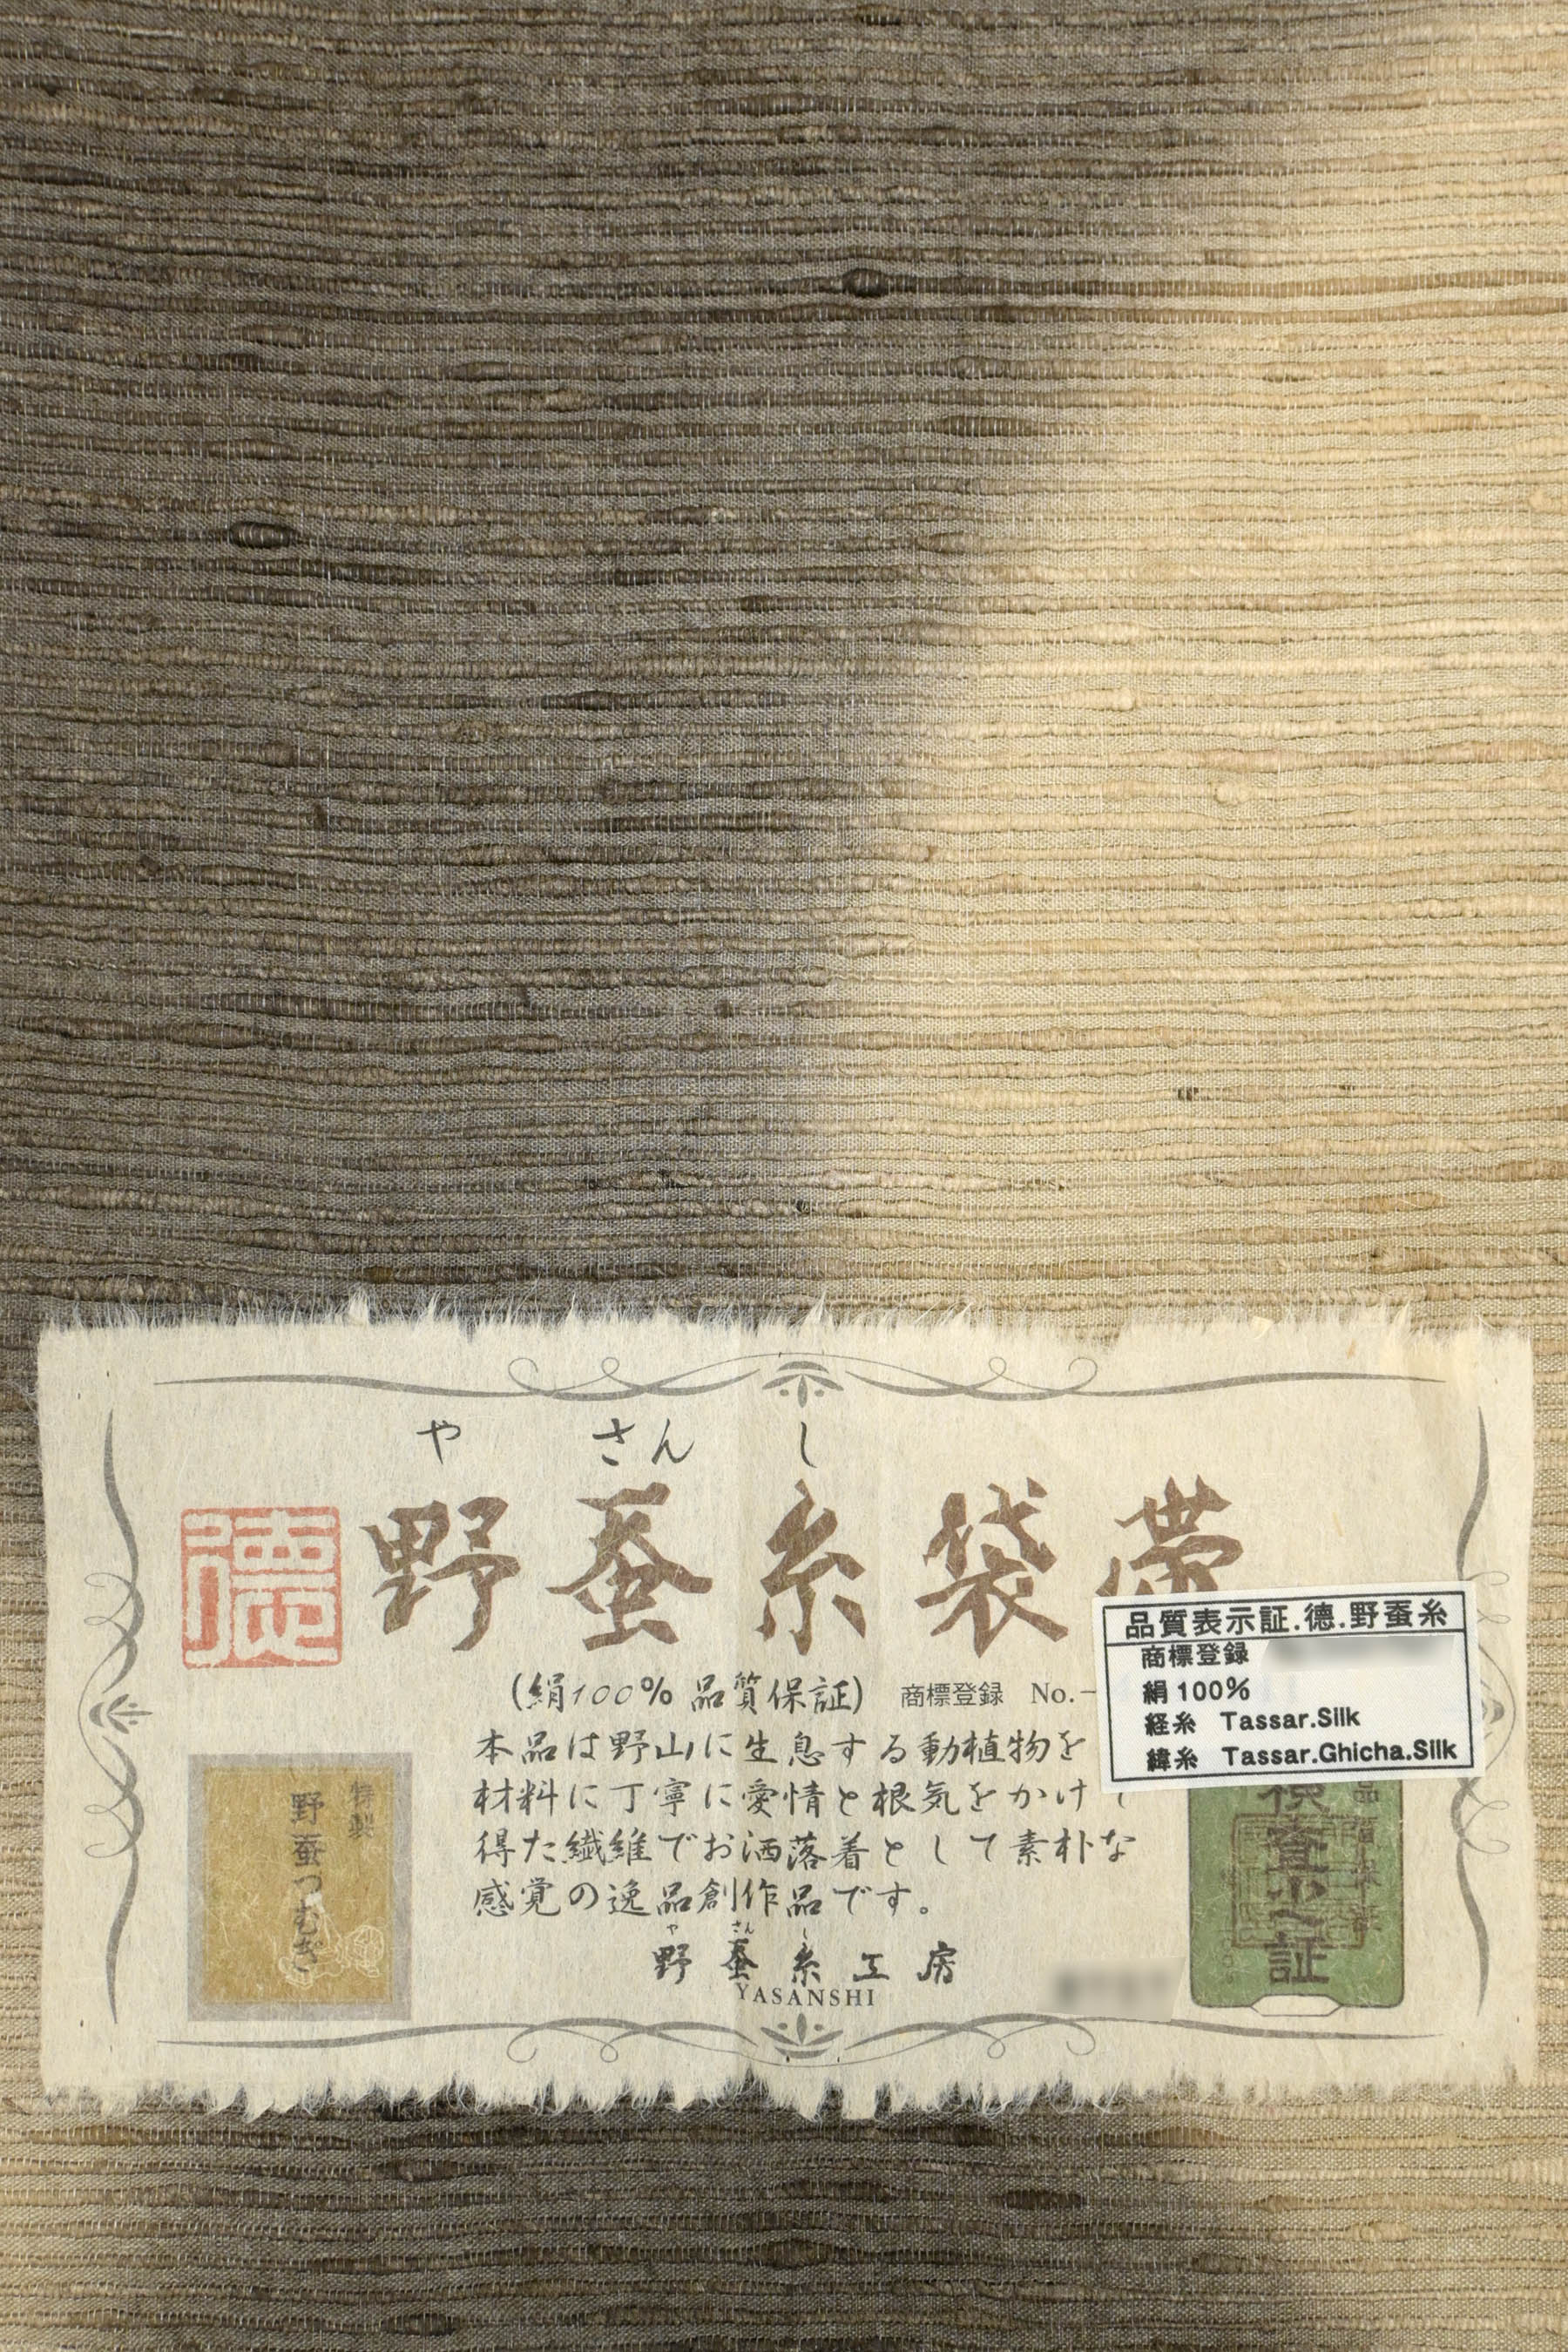 や さん し
野蚕糸袋帯
德
(絹100% 品質保証) 商標登録 No.-
本品は野山に生息する動植物を
材料に丁寧に愛情と根気をかけて
得た繊維でお洒落着として素朴な
感覚の逸品創作品です。
や さん し
野蚕糸工房
YASANSHI
特製
野蚕つむぎ
品質表示証.徳.野蚕糸
商標登録
絹100%
経糸 Tassar.Silk
緯糸 Tassar.Ghicha.Silk
検査之証